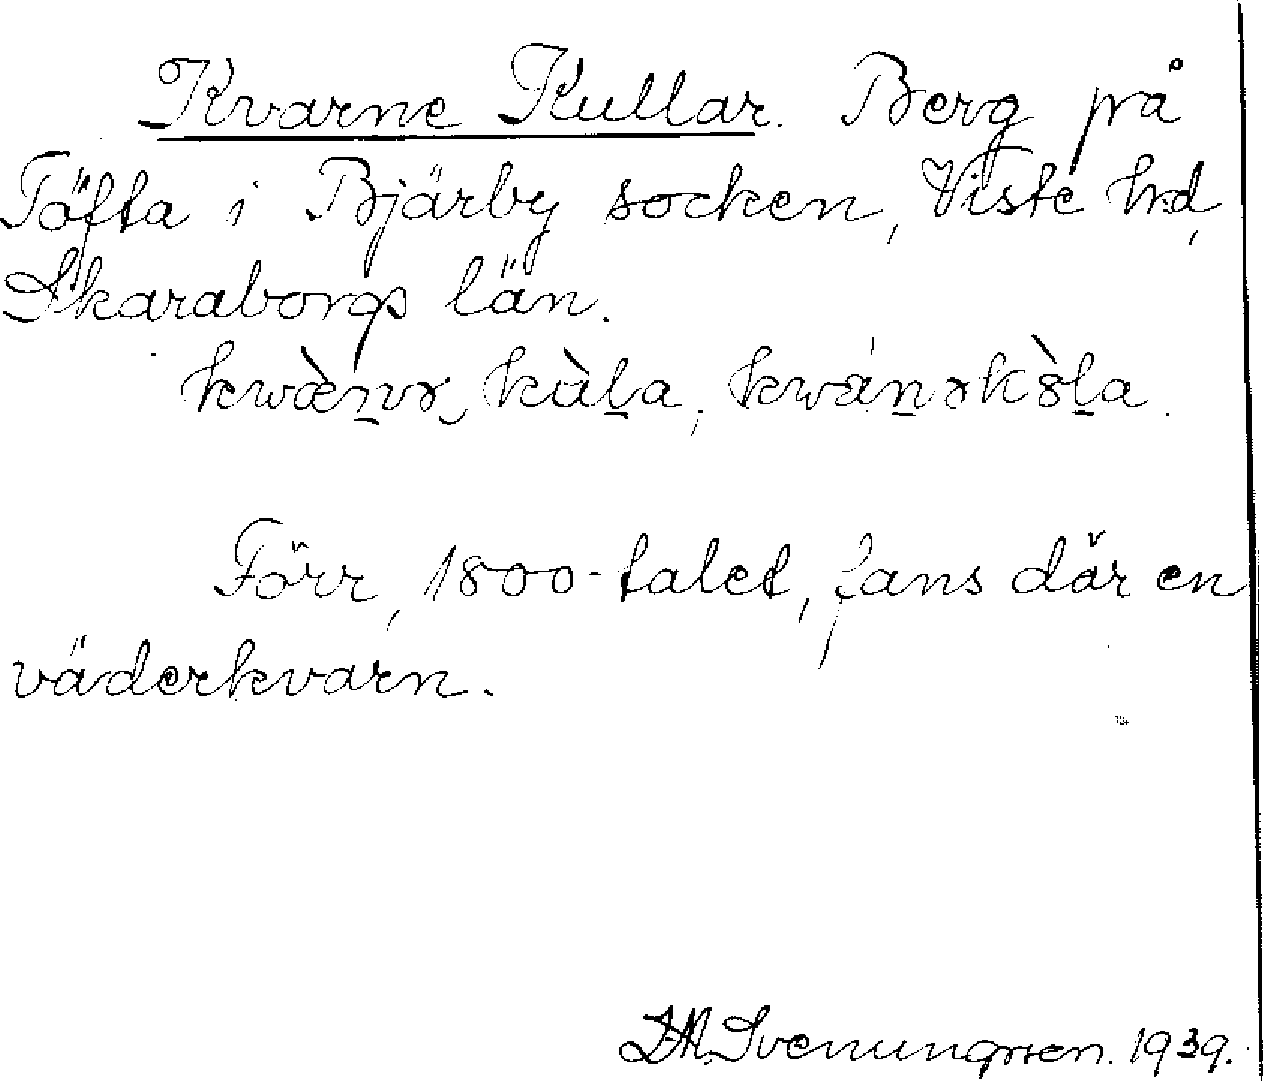 Kvarne Kullar. Berg på
Töfta i Bjärby socken, Viste hd,
Skaraborgs län.
kwæ̀ṉɤ kùḻa, kwáṉɤkɤ̀ḻa.
Förr, 1800-talet, fans där en
väderkvarn.
Svenungsson. 1939.